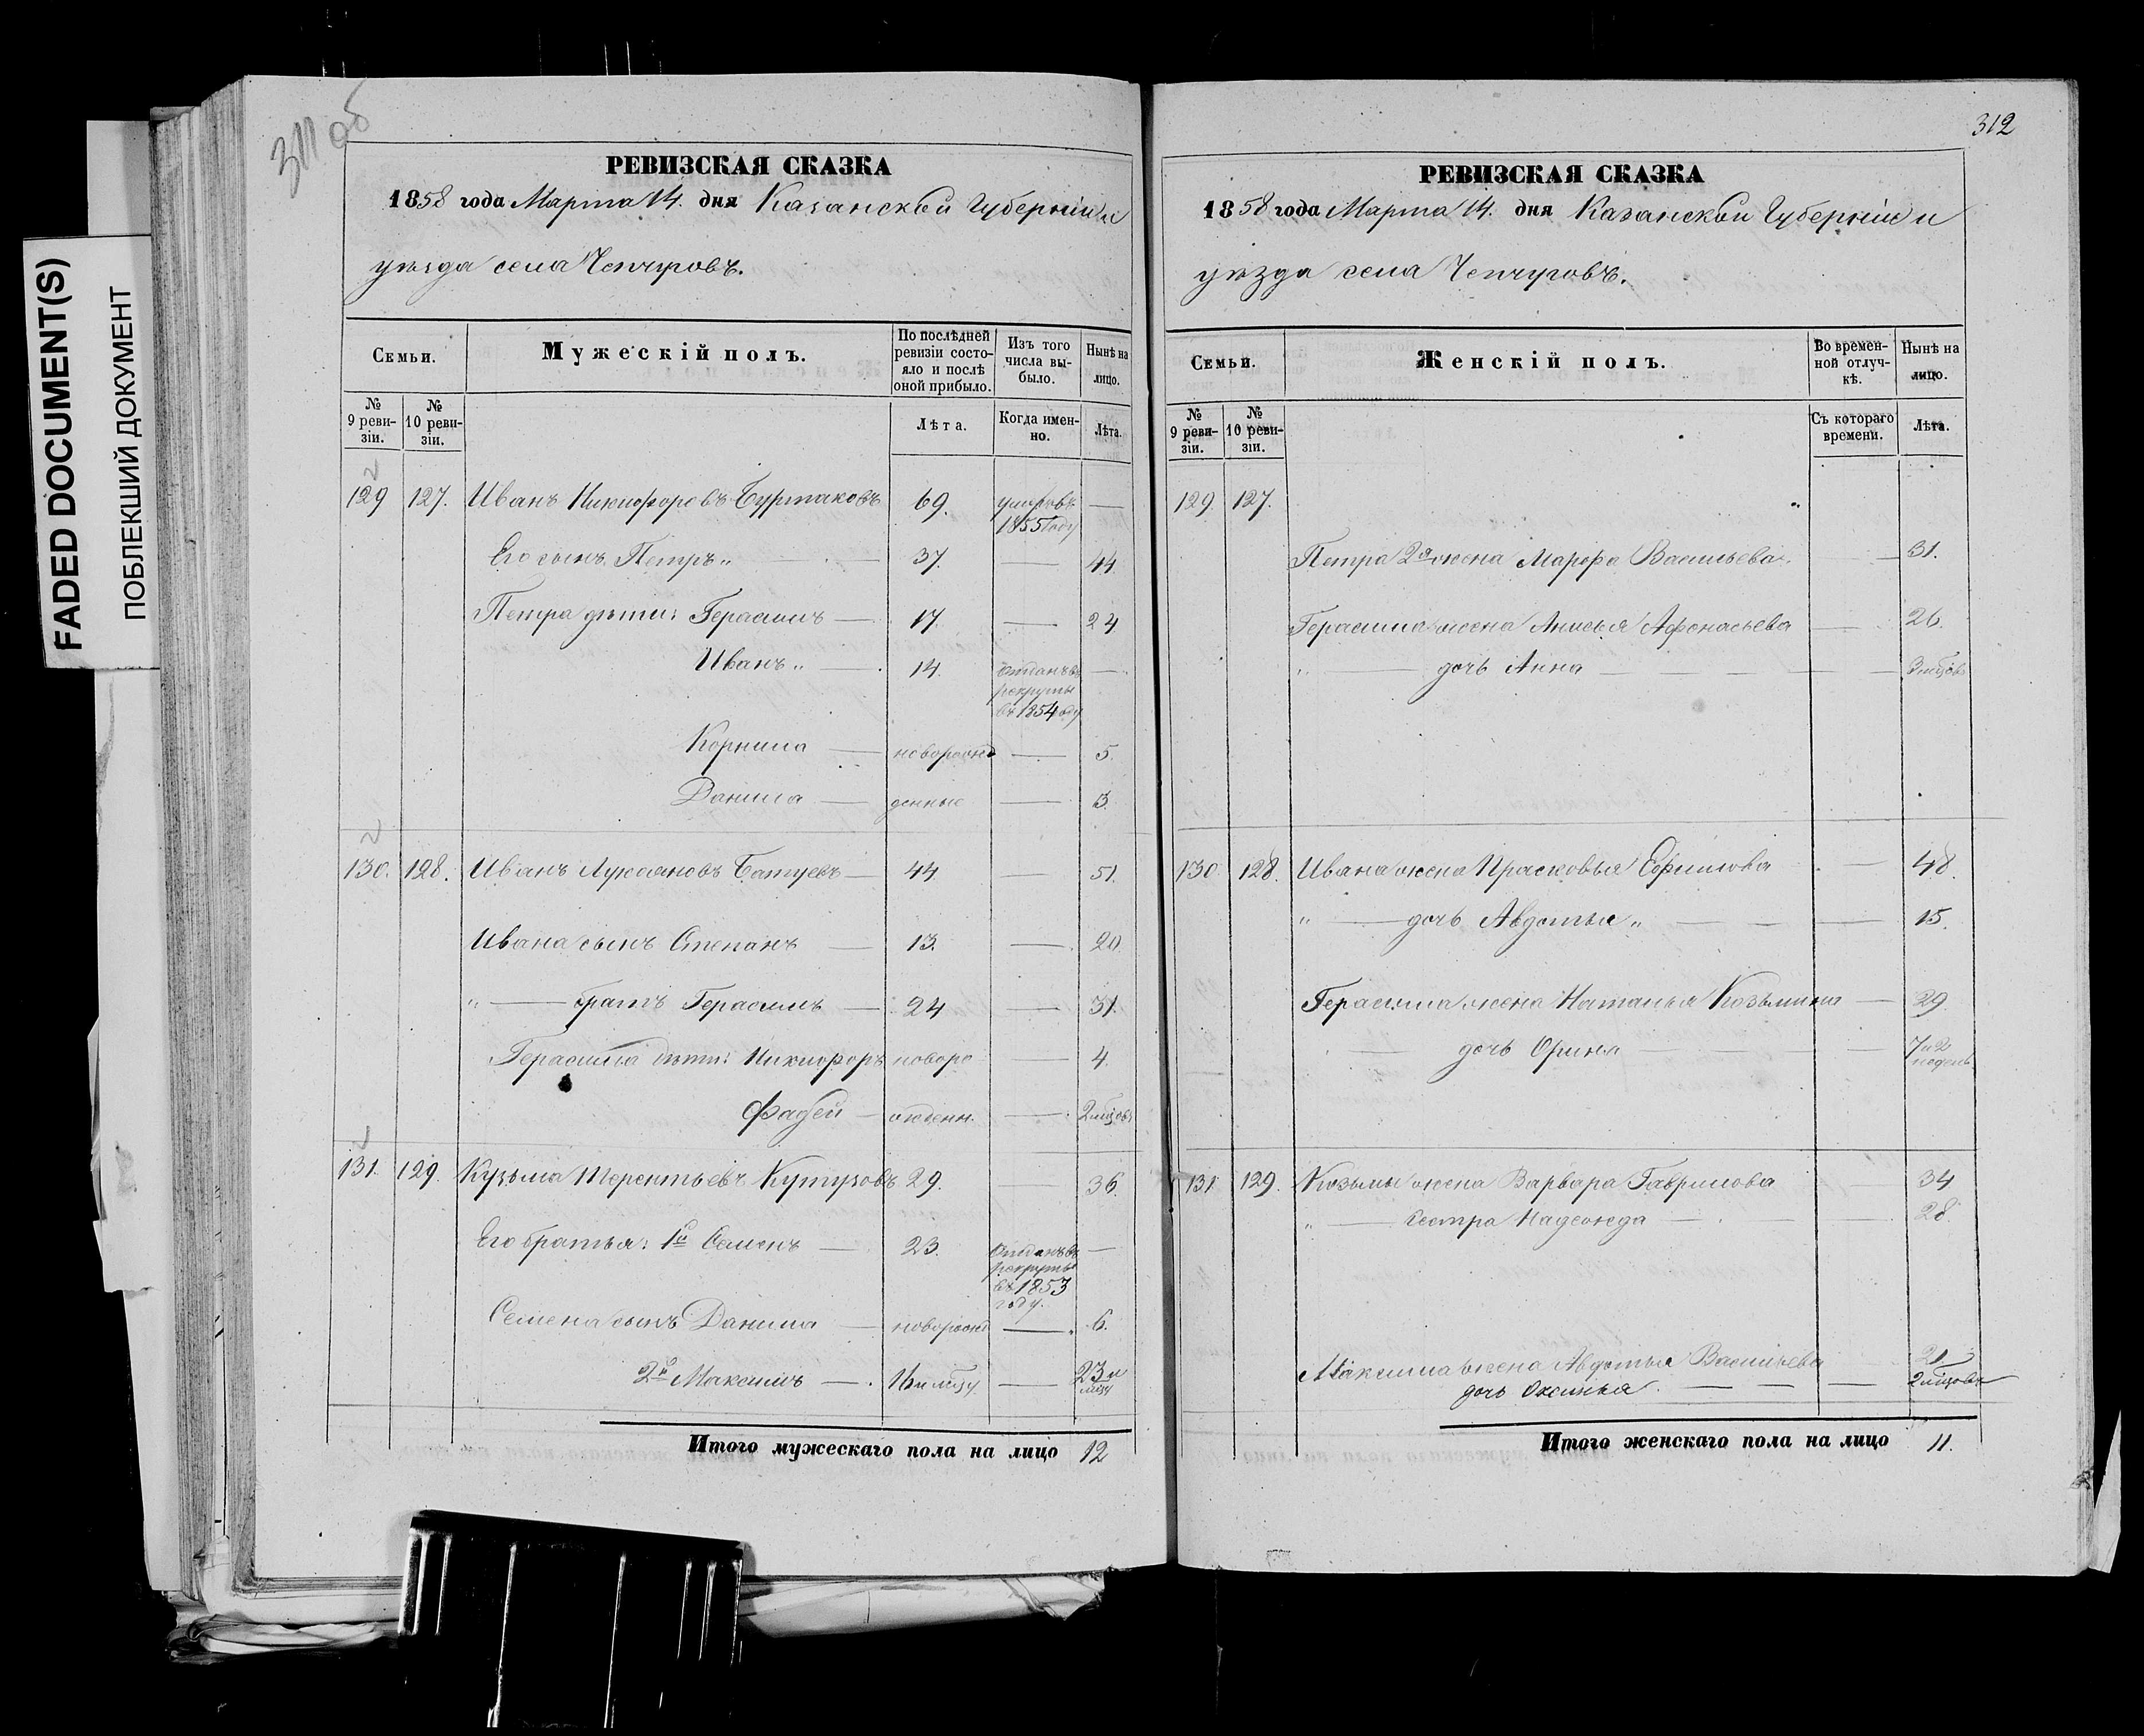 FADED DOCUMENT(S)
ПОБЛЕКШИЙ ДОКУМЕНТ
311 об
РЕВИЗСКАЯ СКАЗКА
1858 года Марта 14. дня Казанской Губерніи и
уѣзда села Чепчуговъ.
Семьи.
Мужескій полъ.
По послѣдней ревизіи состояло и послѣ оной прибыло.
Изъ того числа выбыло.
Нынѣ на лицо.
№ 9 ревизіи.
№ 10 ревизіи.
Лѣта.
Когда именно.
Лѣта.
129 127. Иванъ Никифоровъ Бурмаковъ 69. умеръ въ 1855 году —
Его сынъ Петръ „ — 37. — 44
Петра дѣти: Герасимъ — 17. — 24
Иванъ „ — 14. отданъ въ рекруты въ 1854 году —
Корнила — новорожд — 5.
Данила — денные — 3.
130. 128. Иванъ Лукояновъ Батуевъ — 44 — 51.
Ивана сынъ Степанъ — 13. — 20
„ — братъ Герасимъ — 24 — 31.
Герасима дѣти: Никифоръ новоро — 4.
Фадей — жденн. — 2 мѣцовъ
131. 129. Кузьма Терентьевъ Кутузовъ 29. — 36.
Его братья: 1й Семенъ — 23. отданъ въ рекруты въ 1853 году. —
Семена сынъ Данила — новорожд — 6.
2й Максимъ — 16 и мѣцу — 23 и мѣцу
Итого мужескаго пола на лицо 12
312
РЕВИЗСКАЯ СКАЗКА
1858 года Марта 14. дня Казанской Губерніи и
уѣзда села Чепчуговъ.
Семьи.
Женскій полъ.
Во временной отлучкѣ.
Нынѣ на лицо.
№ 9 ревизіи.
№ 10 ревизіи.
Съ котораго времени.
Лѣта.
129. 127.
Петра 2я жена Марфа Васильева — 31.
Герасима жена Анисья Афонасьева — 26.
„ — дочь Анна — 3 мѣцовъ
130 128. Ивана жена Прасковья Ефимова — 48.
„ — дочь Авдотья „ — 15.
Герасима жена Наталья Козьмина — 29
— дочь Орина — 7 и 2 недель
131 129. Козьмы жена Варвара Гаврилова — 34
„ — сестра Надежда — 28.
Максима жена Авдотья Васильева 21.
дочь Оксинья. — 2 мѣцовъ
Итого женскаго пола на лицо 11.